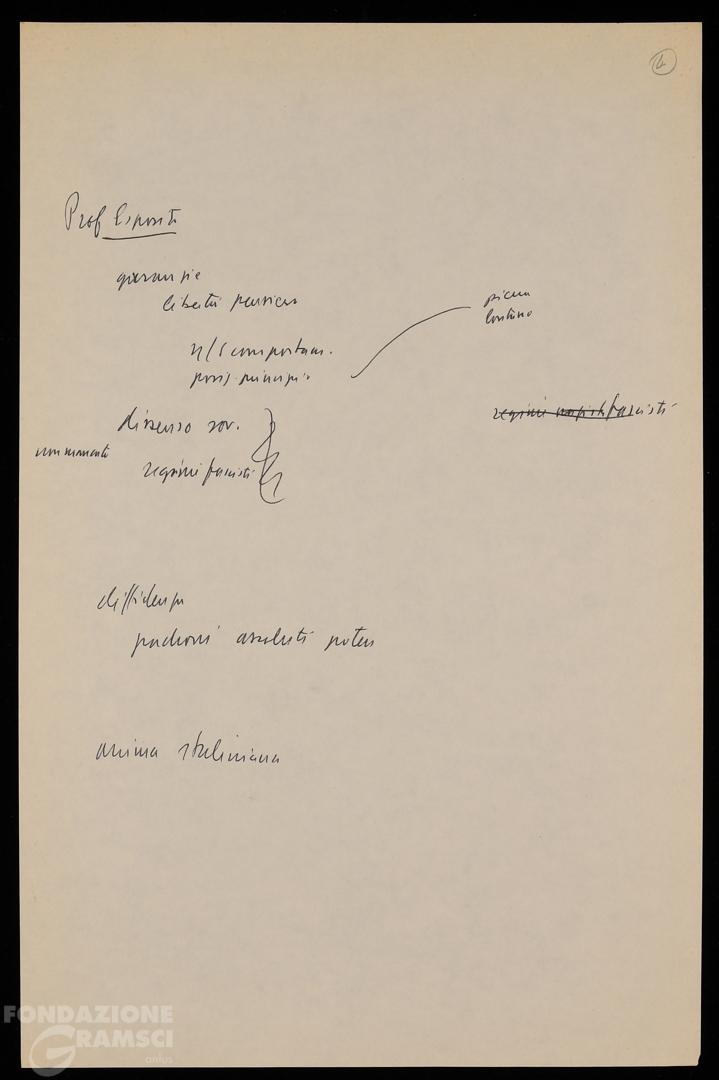 4
Prof Esposito
garanzie
libertà pensiero
n/s comportam.
posiz. principio
lontano
dissenso sov.
regimi fascisti
regimi nazisti fascisti
diffidenza
padroni assoluti potere
anima staliniana
FONDAZIONE
GRAMSCI
onlus